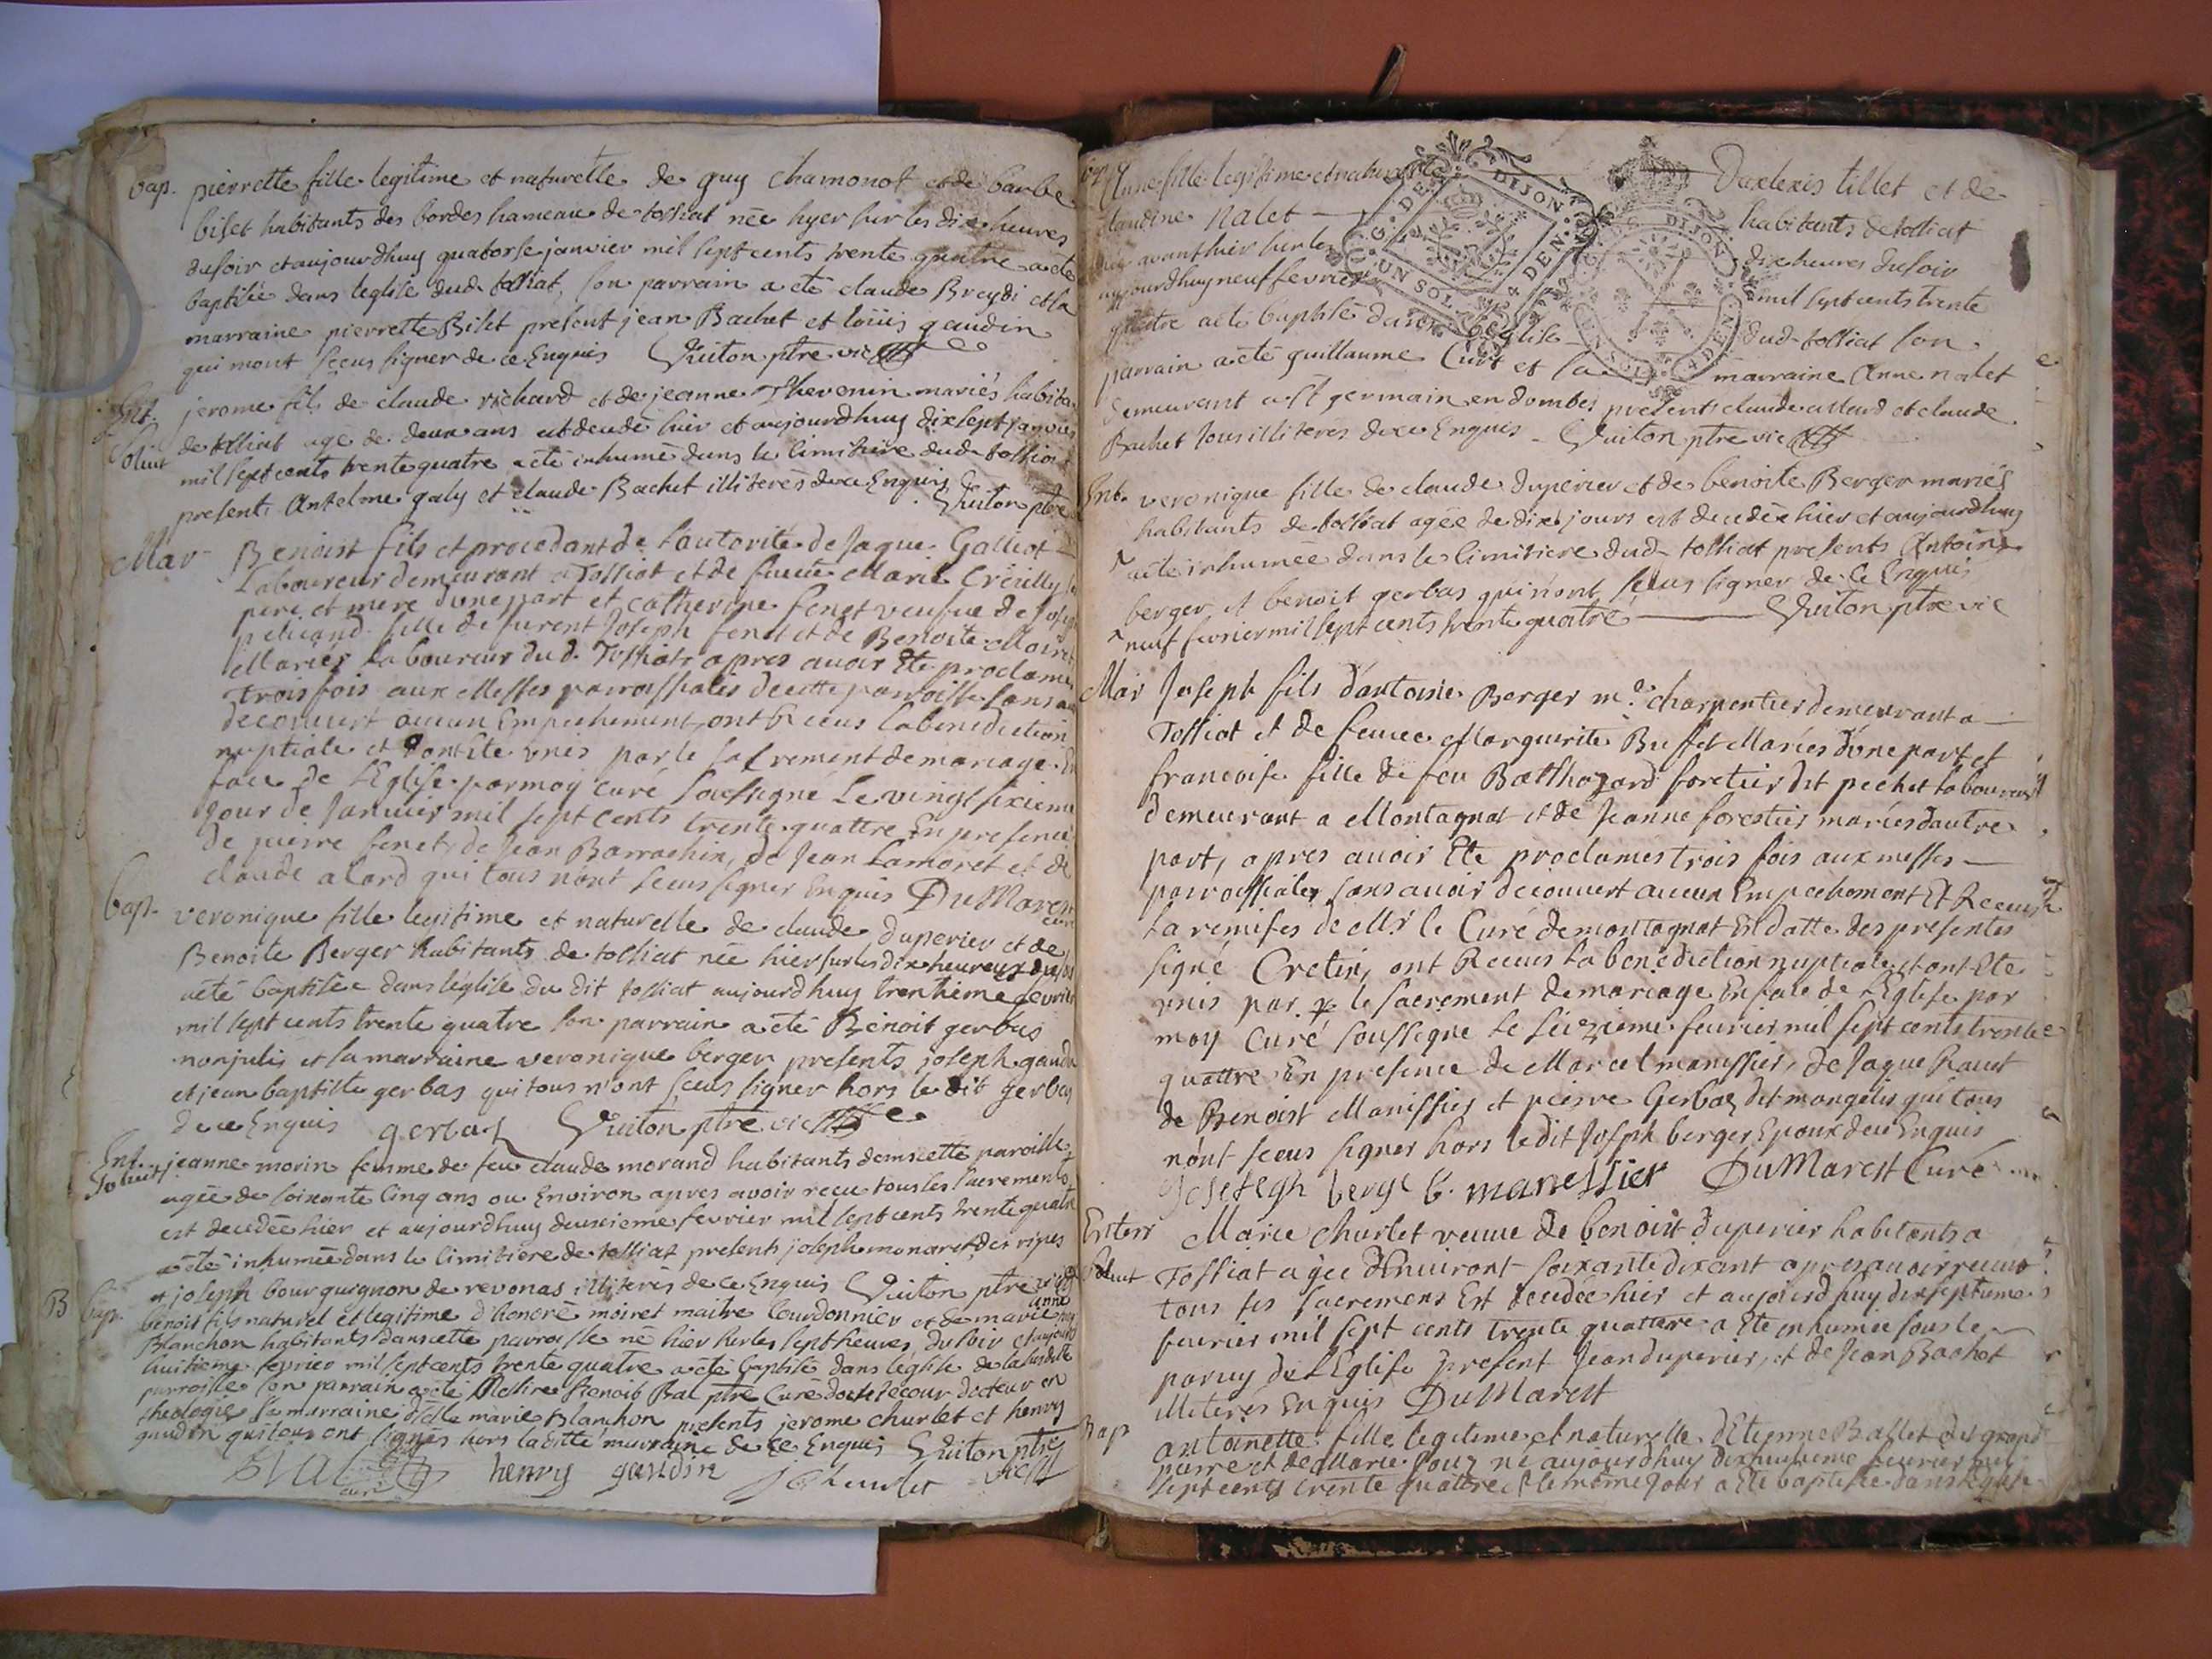 bap. pierrette fille legitime et naturelle de guy chamonot et de barbe
biset habitants des bordes hameau de tossiat née hyer sur les dix heures
du soir et aujourdhuy quatorse janvier mil sept cents trente quatre a eté
baptisée dans leglise dud tossiat, son parrain a eté claude Breydi et la
marraine pierrette Biset present jean Bachet et loüis gaudin
qui mont sceus signer de ce Enquis Guiton ptre vic
Ent. jerome fils de claude richard et de jeanne Thevenin mariés habita
de tossiat agé de deux ans est decedé hier et aujourdhuy dixsept janvier
mil sept cents trente quatre a eté inhumé dans le cimitiere dud tossiat
presents Antelme galy et claude Bachet illiterés de ce Enquis Guiton ptre
Mar Benoist fils et procedant de l'autorité de Jaque Galliot
Laboureur demeurant a Tossiat et de fuëue Marie Creuilly
pere et mere d'une part et catherine fenet veufue de Josep
pelicand fille de furent Joseph fenet et de Benoite Moiret
Mariés laboureur dud. Tossiat apres auoir Ete proclamé
Trois fois aux Messes parroissiales de cette parroisse sans au
decouuert aucun Empechement, ont Receus la benediction
nuptiale et sont Ete vnis par le sacrement de mariage En
face de l'Eglise par moy curé soussigné Le vingt sixieme
jour de Januier mil sept cents trente quattre En presence
de pierre fenet, de Jean Barrachin, de Jean Lamoret et de
claude alard qui tous n'ont sceus signer Enquis DuMarest curé
bap. veronique fille legitime et naturelle de claude duperier et de
Benoite Berger habitants de tossiat née hier sur les dix heures du soi
a eté baptisée dans léglise du dit tossiat aujourdhuy trentieme fevrier
mil sept cents trente quatre son parrain a été Benoit gerbas
nonjulis et la marraine veronique berger presents joseph gaudi
et jean baptiste gerbas qui tous n'ont sceus signer hors le dit gerbas
de ce Enquis gerbas Guiton ptre vic
Ent. jeanne morin femme de feu claude morand habitants dans cette paroisse
agée de soixante cinq ans ou Environ apres avoir reçu tous les sacrements
est decedée hier et aujourdhuy deuxieme fevrier mil sept cents trente quatre
a eté inhumée dans le cimitiere de tossiat presents joseph monaret des ripes
et joseph bourguignon de revonas illiterés de ce Enquis Guiton ptre vic
B bap. benoit fils naturel et legitime d'honoré moiret maitre Courdonnier et de marie anne
Blanchon habitants dans cette parroisse né hier sur les sept heures du soir et aujourd
huitieme fevrier mil sept cents trente quatre a eté baptisé dans léglise de la susditte
parroisse son parrain a eté Messire Benoit Bal ptre Curé docteur en
theologie sa marraine dlle marie Blanchon presents jerome churlet et henry
gaudin qui tous ont signés hors laditte marraine de ce Enquis Guiton ptre
BAL curé henry gaudin j Churlet vic
bap Anne fille legitime et naturelle Dalexis tillet et de
claudine nalet habitants de tossiat
née avant hier sur les dix heures du soir
aujourdhuy neuf fevrier mil sept cents trente
quatre a eté baptisée dans l'eglise dud tossiat son
parrain a eté guillaume Curt et la marraine Anne nalet
demeurant a st germain en dombes presents claude allard et claude
Bachet tous illiterés de ce Enquis Guiton ptre vic
G. DE DIJON
UN SOL 4 DEN.
DIJON
4 DEN
Ent. veronique fille de claude duperier et de benoite Berger mariés
habitants de tossiat agée de dix jours est decedée hier et aujourdhuy
^ a eté inhumée dans le cimitiere dud tossiat presents Antoine
berger et benoit gerbas qui n'ont sceus signer de ce Enquis
^ neuf fevrier mil sept cents trente quatre Guiton ptre vic
Mar Joseph fils d'antoine Berger me. charpentier demeurant a
Tossiat et de feuee Marguerite Buffet Mariés d'une part et
francoise fille de feu Balthazard foretier dit pechet laboureur
demeurant a Montagnat et de Jeanne forestier mariés dautre
part, apres auoir Ete proclames trois fois aux messes
parroissiales sans auoir decouuert aucun Empechement Et Receus
La remises de Mr. le Curé de montagnat En datte des presentes
signé Cretin, ont Receus la benediction nuptiale, et ont Ete
vnis par le sacrement de mariage En face de l'Eglise par
moy Curé soussigné Le seizieme feurier mil sept cents trente
quattre En presence de Marcel manissier, de Jaque Rauet
de Benoist Manissier et pierre Gerbaz dit mangelis qui tous
n'ont sceus signer hors ledit Joseph berger Epoux de ce Enquis
Josefegh berge b. manessier DuMarest Curé
Enterr Marie churlet veuue de benoist duperier habitants a
Tossiat agée d'Enuiront soixante dix ant apres auoir receus
tous ses sacremens Est decedée hier et aujourdhuy dixseptieme
feurier mil sept cents trente quattre a Ete inhumée sous le
paruy de l'Eglise present Jean duperier, et de Jean Bachet
illeterés Enquis DuMarest
Bap antoinette fille legitime et naturelle d'Etienne Ballet dit grand
pierre et de Marie Pouy né aujourdhuy dixhuitieme feurier mil
sept cents trente quattre et le même jour a Ete baptisée dans l'eglise